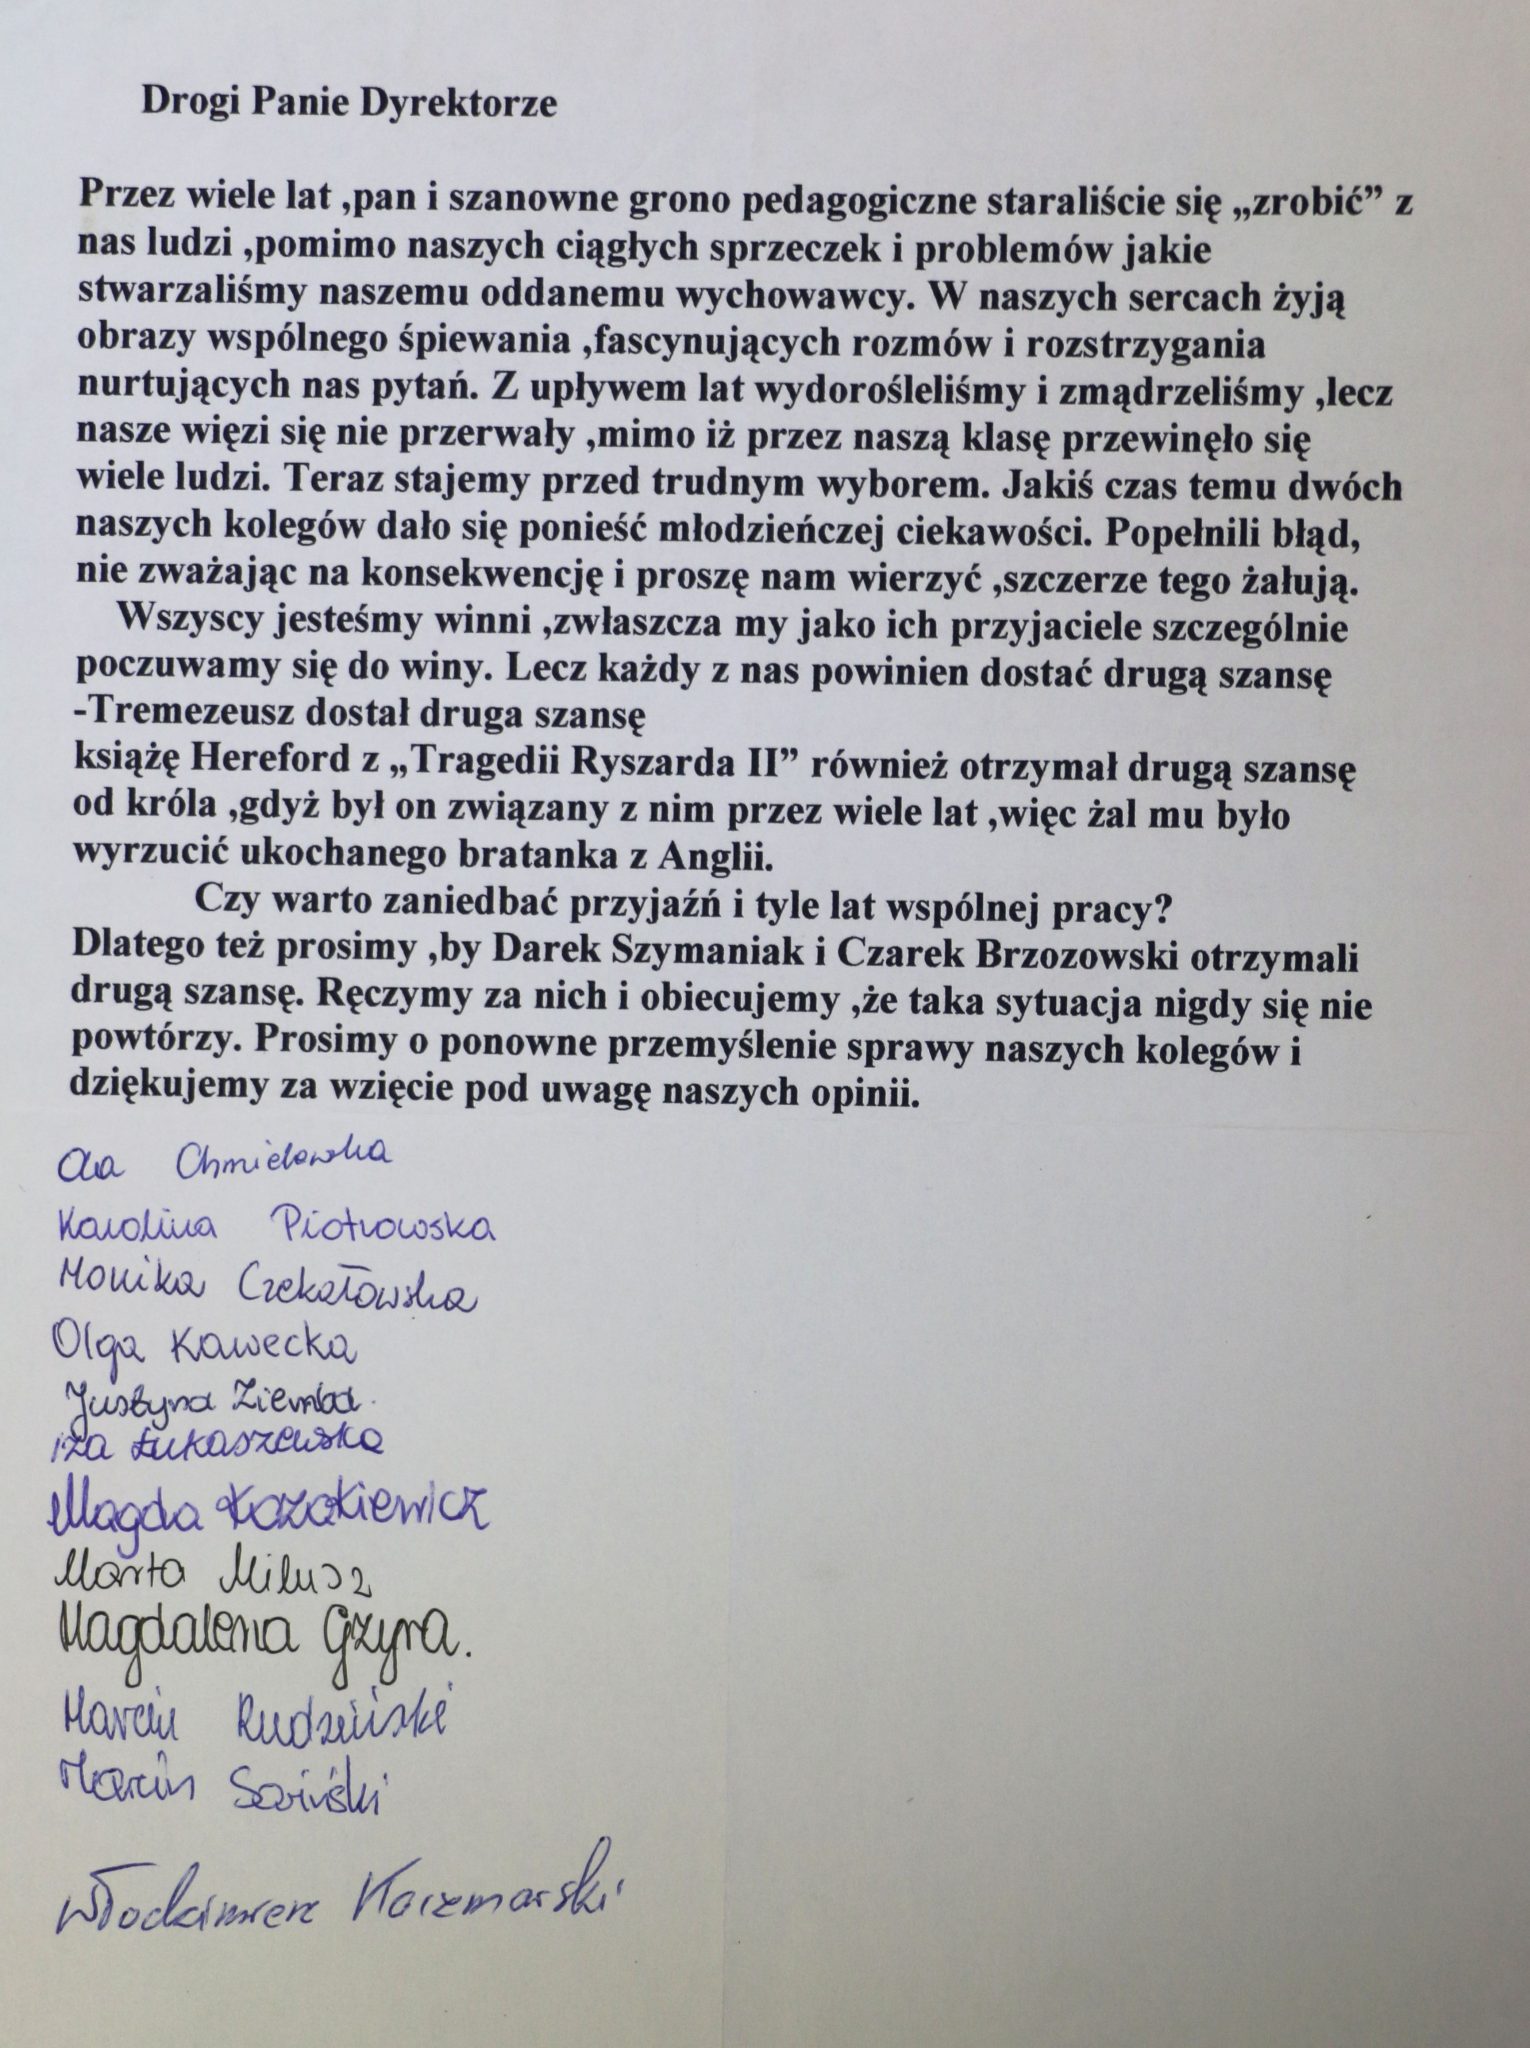 Drogi Panie Dyrektorze
Przez wiele lat ,pan i szanowne grono pedagogiczne staraliście się „zrobić” z
nas ludzi ,pomimo naszych ciągłych sprzeczek i problemów jakie
stwarzaliśmy naszemu oddanemu wychowawcy. W naszych sercach żyją
obrazy wspólnego śpiewania ,fascynujących rozmów i rozstrzygania
nurtujących nas pytań. Z upływem lat wydorośleliśmy i zmądrzeliśmy ,lecz
nasze więzi się nie przerwały ,mimo iż przez naszą klasę przewinęło się
wiele ludzi. Teraz stajemy przed trudnym wyborem. Jakiś czas temu dwóch
naszych kolegów dało się ponieść młodzieńczej ciekawości. Popełnili błąd,
nie zważając na konsekwencję i proszę nam wierzyć ,szczerze tego żałują.
Wszyscy jesteśmy winni ,zwłaszcza my jako ich przyjaciele szczególnie
poczuwamy się do winy. Lecz każdy z nas powinien dostać drugą szansę
-Tremezeusz dostał druga szansę
książę Hereford z „Tragedii Ryszarda II” również otrzymał drugą szansę
od króla ,gdyż był on związany z nim przez wiele lat ,więc żal mu było
wyrzucić ukochanego bratanka z Anglii.
Czy warto zaniedbać przyjaźń i tyle lat wspólnej pracy?
Dlatego też prosimy ,by Darek Szymaniak i Czarek Brzozowski otrzymali
drugą szansę. Ręczymy za nich i obiecujemy ,że taka sytuacja nigdy się nie
powtórzy. Prosimy o ponowne przemyślenie sprawy naszych kolegów i
dziękujemy za wzięcie pod uwagę naszych opinii.
Ola Chmielewska
Karolina Piotrowska
Monika Czekałowska
Olga Kawecka
Justyna Ziemba
Iza Łukaszewska
Magda Kozakiewicz
Marta Milusz
Magdalena Gzyra.
Marcin Rudziński
Marcin
Włodzimierz Kaczmarski